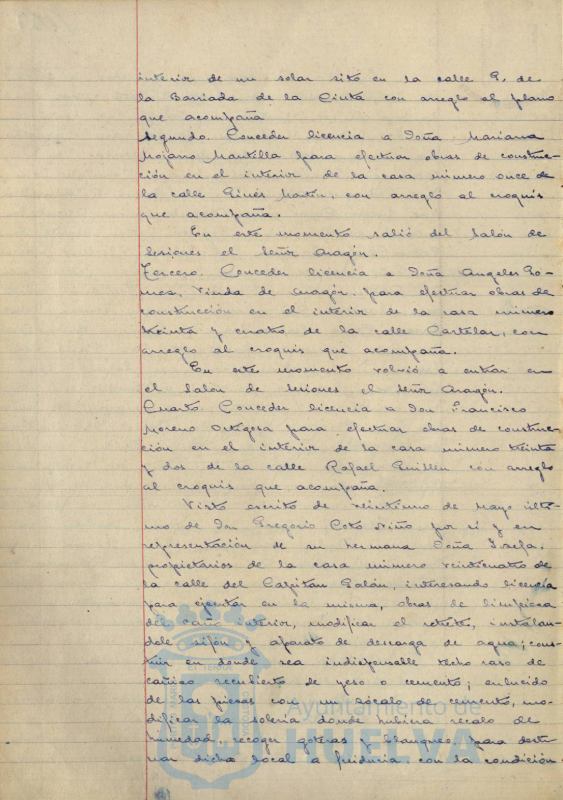 interior de un solar sito en la calle G. de
la Barriada de la Cinta con arreglo al plano
que acompaña
Segundo. Conceder licencia a Doña Mariana
Mojano Mantilla para efectuar obras de construc-
ción en el interior de la casa número once de
la calle Ginés Martín, con arreglo al croquis
que acompaña.
En este momento salió del Salón de
Sesiones el Señor Aragón.
Tercero. Conceder licencia a Doña Angeles Go-
mez, Viuda de Aragón, para efectuar obras de
construcción en el interior de la casa número
treinta y cuatro de la calle Castelar, con
arreglo al croquis que acompaña.
En este momento volvió a entrar en
el Salón de Sesiones el Señor Aragón.
Cuarto. Conceder licencia a Don Francisco
Moreno Ortigosa para efectuar obras de construc-
ción en el interior de la casa número treinta
y dos de la calle Rafael Guillen con arreglo
al croquis que acompaña.
Visto escrito de veintiuno de Mayo últi-
mo de Don Gregorio Coto Niño por sí y en
representación de su hermana Doña
propietarios de la casa número veinticuatro de
la calle del Capitán Galán, interesando licencia
para ejecutar en la misma, obras de limpieza
del caño interior, modificar el retrete, instalan-
dole sifón y aparato de descarga de agua; cons-
truir en donde sea indispensable techo raso de
cañizo recubierto de yeso o cemento; enlucido
de las piezas con un zócalo de cemento, mo-
dificar la solería donde hubiera recalo de
humedad, recoger goteras y blanqueo para desti-
nar dicho local a freiduría con la condición
Ayuntamiento de
HUELVA